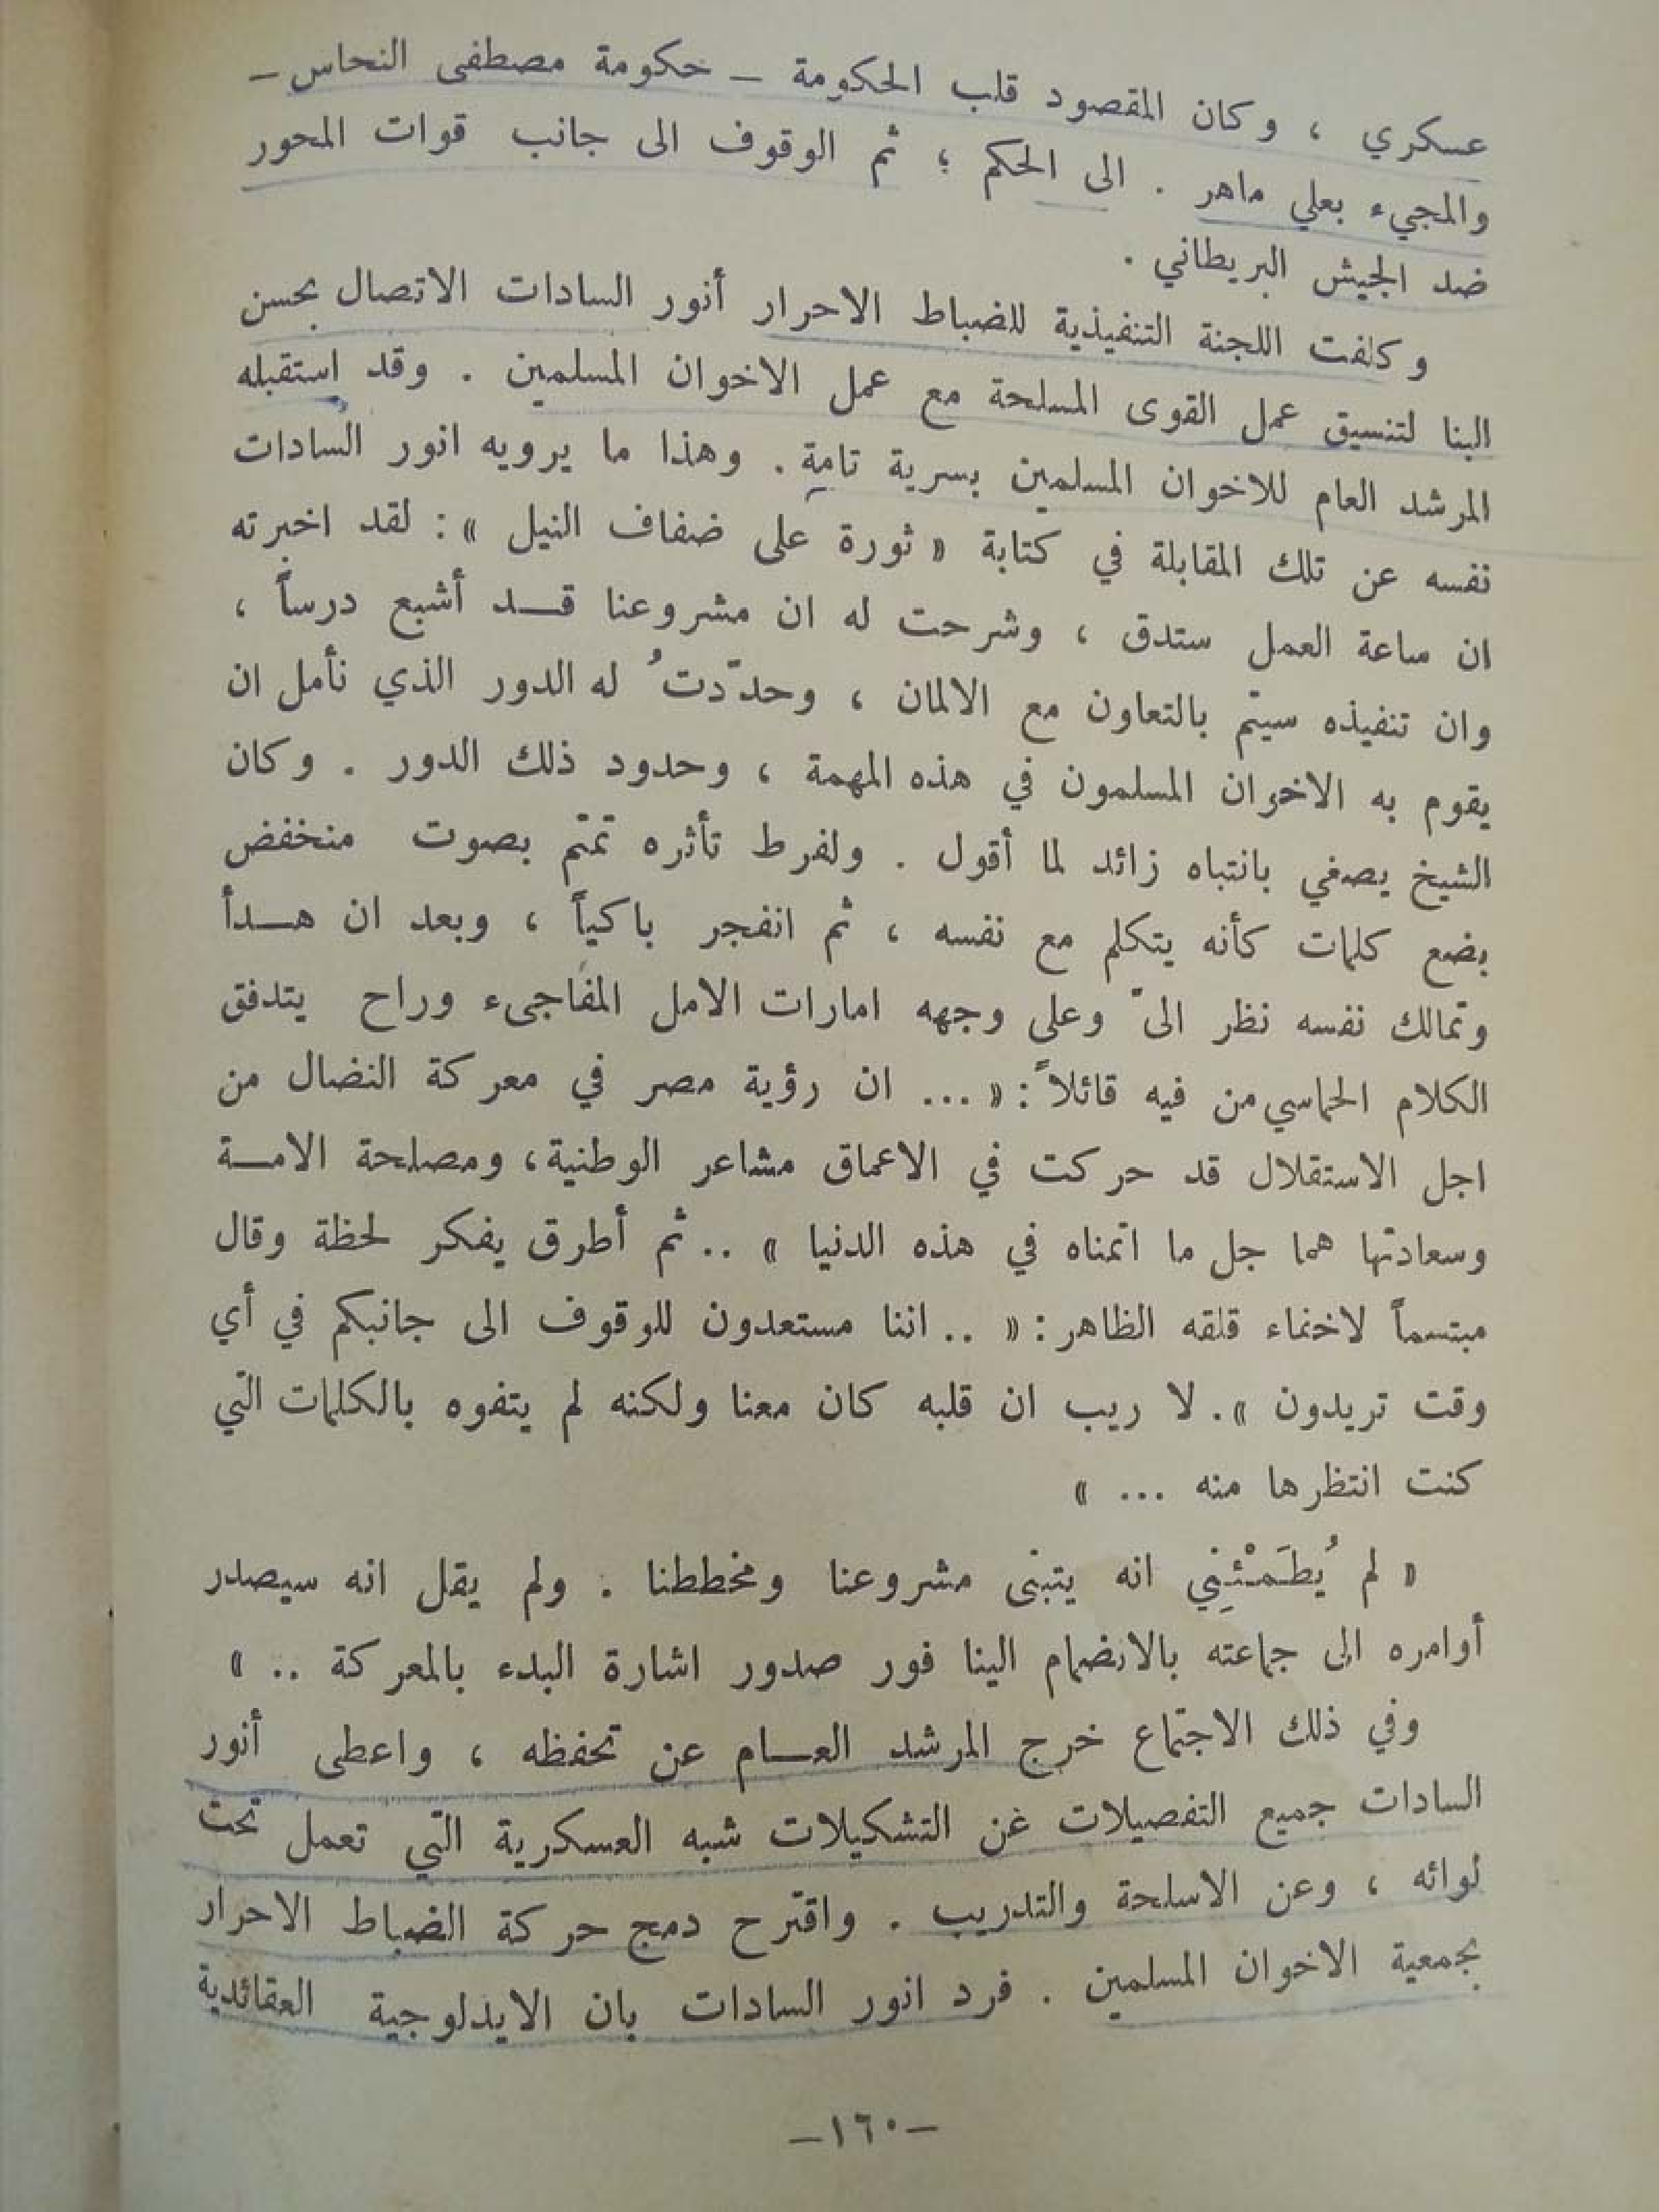 عسكري ، وكان المقصود قلب الحكومة – حكومة مصطفى النحاس –
والمجيء بعلي ماهر . الى الحكم ؛ ثم الوقوف الى جانب قوات المحور
ضد الجيش البريطاني .
وكلفت اللجنة التنفيذية للضباط الاحرار أنور السادات الاتصال بحسن
البنا لتنسيق عمل القوى المسلحة مع عمل الاخوان المسلمين . وقد استقبله
المرشد العام للاخوان المسلمين بسرية تامة . وهذا ما يرويه انور السادات
نفسه عن تلك المقابلة في كتابة « ثورة على ضفاف النيل » : لقد اخبرته
ان ساعة العمل ستدق ، وشرحت له ان مشروعنا قد أشبع درساً ،
وان تنفيذه سيتم بالتعاون مع الالمان ، وحدّدتُ له الدور الذي نأمل ان
يقوم به الاخوان المسلمون في هذه المهمة ، وحدود ذلك الدور . وكان
الشيخ يصغي بانتباه زائد لما أقول . ولفرط تأثره تمتم بصوت منخفض
بضع كلمات كأنه يتكلم مع نفسه ، ثم انفجر باكياً ، وبعد ان هدأ
وتمالك نفسه نظر الىّ وعلى وجهه امارات الامل المفاجىء وراح يتدفق
الكلام الحماسي من فيه قائلاً : « ... ان رؤية مصر في معركة النضال من
اجل الاستقلال قد حركت في الاعماق مشاعر الوطنية ، ومصلحة الامة
وسعادتها هما جل ما اتمناه في هذه الدنيا » .. ثم أطرق يفكر لحظة وقال
مبتسماً لاخفاء قلقه الظاهر : « .. اننا مستعدون للوقوف الى جانبكم في أي
وقت تريدون » . لا ريب ان قلبه كان معنا ولكنه لم يتفوه بالكلمات التي
كنت انتظرها منه ... »
« لم يُطَمْئِنِي انه يتبنى مشروعنا ومخططنا . ولم يقل انه سيصدر
أوامره الى جماعته بالانضمام الينا فور صدور اشارة البدء بالمعركة .. »
وفي ذلك الاجتماع خرج المرشد العام عن تحفظه ، واعطى أنور
السادات جميع التفصيلات غن التشكيلات شبه العسكرية التي تعمل تحت
لوائه ، وعن الاسلحة والتدريب . واقترح دمج حركة الضباط الاحرار
بجمعية الاخوان المسلمين . فرد انور السادات بان الايدلوجية العقائدية
–١٦٠–